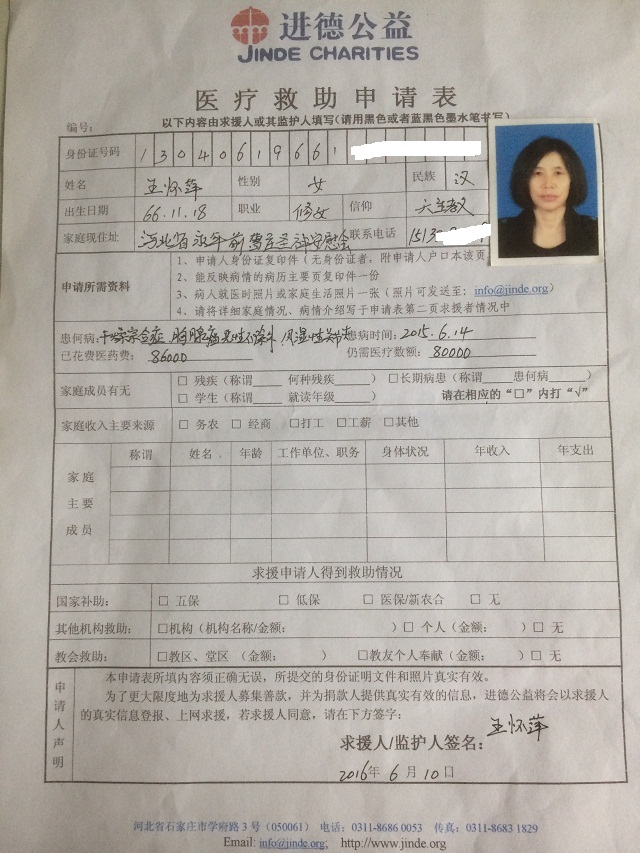 进德公益
JINDE CHARITIES
医疗救助申请表
编号： 以下内容由求援人或其监护人填写(请用黑色或者蓝黑色墨水笔书写)
身份证号码 1 3 0 4 0 6 1 9 6 6 1
姓名 王怀萍 性别 女 民族 汉
出生日期 66.11.18 职业 修女 信仰 天主教
家庭现住址 河北省永年 联系电话 1513
申请所需资料
1、申请人身份证复印件（无身份证者，附申请人户口本该页
2、能反映病情的病历主要页复印件一份
3、病人就医时照片或家庭生活照片一张（照片可发送至：info@jinde.org）
4、请将详细家庭情况、病情介绍写于申请表第二页求援者情况中
患何病：干燥综合症 风湿性关节炎 患病时间：2015.6.14
已花费医药费： 86000 仍需医疗数额：80000
家庭成员有无 □ 残疾（称谓____ 何种残疾____） □长期病患（称谓____患何病____）
□ 学生（称谓____ 就读年级____） 请在相应的“□”内打“√”
家庭收入主要来源 □ 务农 □ 经商 □打工 □工薪 □其他
家庭主要成员 称谓 姓名 年龄 工作单位、职务 身体状况 年收入 年支出
求援申请人得到救助情况
国家补助： □ 五保 □ 低保 □ 医保/新农合 □ 无
其他机构救助： □机构（机构名称/金额： ）□ 个人（金额： ）□ 无
教会救助： □教区、堂区（金额： ） □教友个人奉献（金额： ）□ 无
申请人声明
本申请表所填内容须正确无误，所提交的身份证明文件和照片真实有效。
为了更大限度地为求援人募集善款，并为捐款人提供真实有效的信息，进德公益将会以求援人
的真实信息登报、上网求援，若求援人同意，请在下方签字：
求援人/监护人签名：王怀萍
2016年 6 月 10 日
河北省石家庄市学府路 3 号（050061） 电话：0311-8686 0053 传真：0311-8683 1829
Email: info@jinde.org; http://www.jinde.org